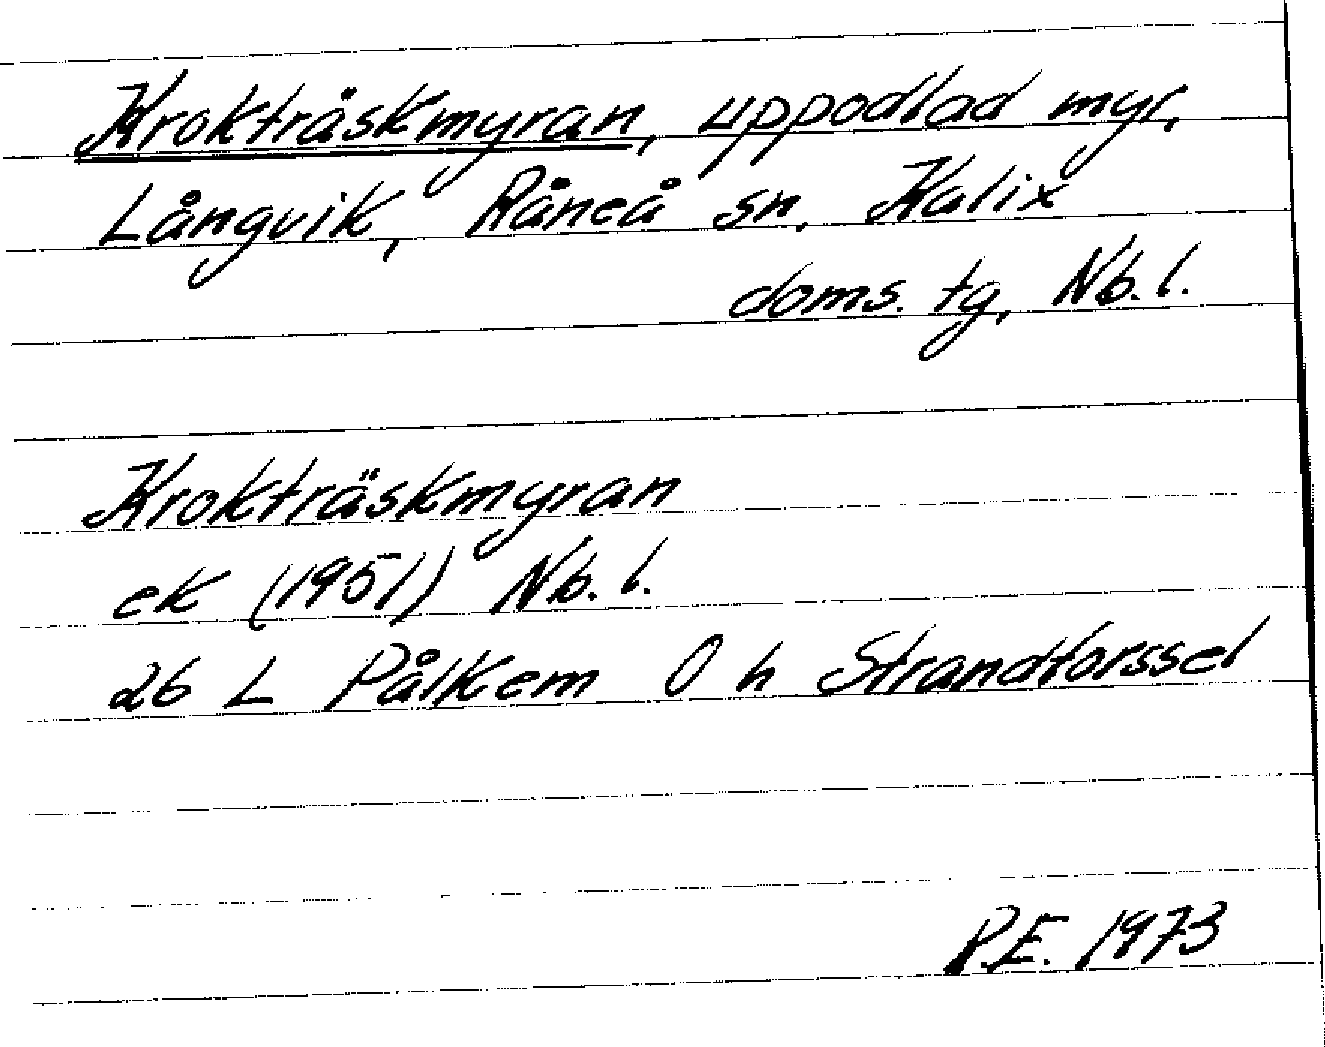 Kroktråskmyran, uppodlad myr,
Långvik, Råneå sn, Kalix
doms. tg, Nb. l.
Krokträskmyran
ek (1951) Nb. l.
26 L Pålkem O h Strandforssel
P.E. 1973